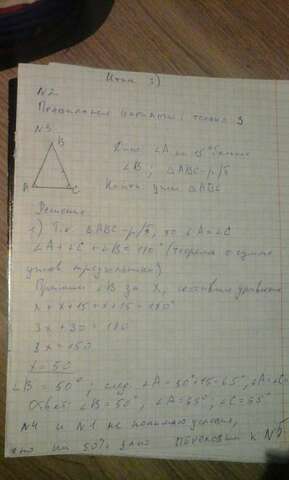 Итак 3)
N2
Правильные варианты: только 3
N3
B
Дано ∠A на 15° больше
∠B; △ABC-р/б
A C
Найти углы △ABC
Решение
1) Т.к △ABC-р/б, то ∠A=∠C
∠A+∠C+∠B=180° (теорема о сумме
углов треугольника)
Примем ∠B за x, составим уравнение
x+x+15+x+15=180°
3x+30=180
3x=150
x=50
∠B=50°; след. ∠A=50+15=65°, ∠A=∠C
Ответ: ∠B=50°, ∠A=65°, ∠C=65°
N4 и N1 не понимаю условия,
но на 50%
к N2